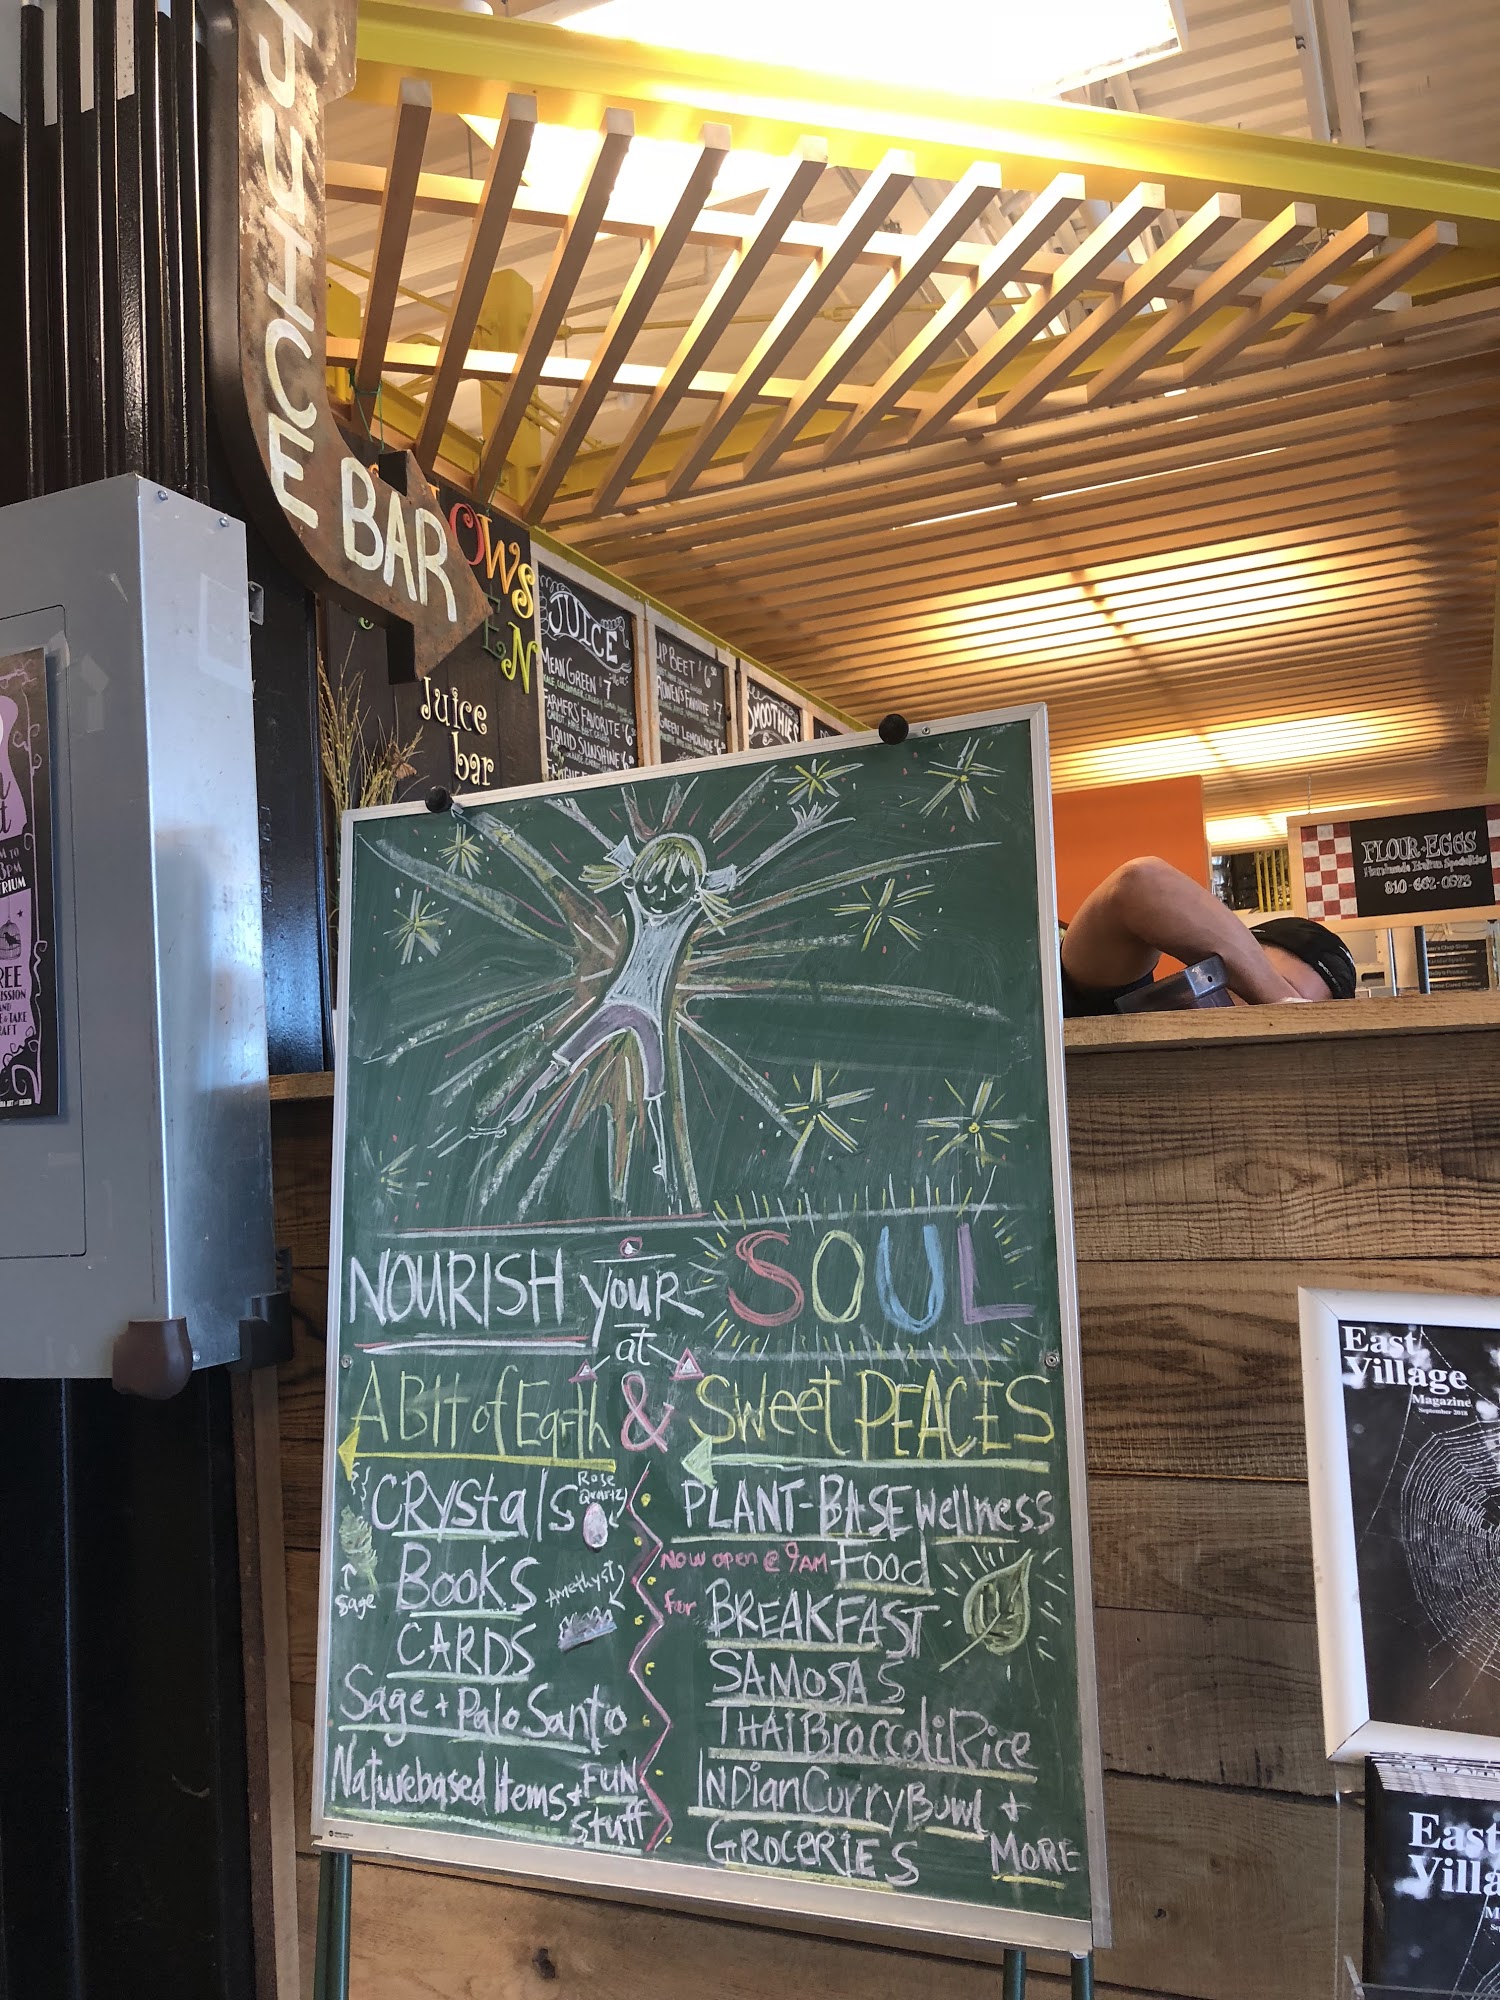 JUICE BAR
OWS
EN
Juice
bar
JUICE
MEAN GREEN $7
FARMERS FAVORITE $6
LIQUID SUNSHINE $6
UP BEET $6
ROWEN'S FAVORITE $7
GREEN LEMONADE
SMOOTHIES
FLOUR+EGGS
Handmade Italian Specialties
810-662-0523
TO
PM
TRIUM
REE
ISSION
AND
E & TAKE
RAFT
NOURISH YOUR SOUL
at
A Bit of Earth & Sweet PEACES
CRYstals
Rose
Quartz
Sage
BOOKS
Amethyst
CARDS
Sage + Palo Santo
Nature based Items + FUN
Stuff
PLANT-BASE Wellness
Now open @ 9AM Food
for BREAKFAST
SAMOSAS
THAI Broccoli Rice
INDian Curry Bowl +
GROCERIES MORE
East
Village
Magazine
September 2018
East
Villa